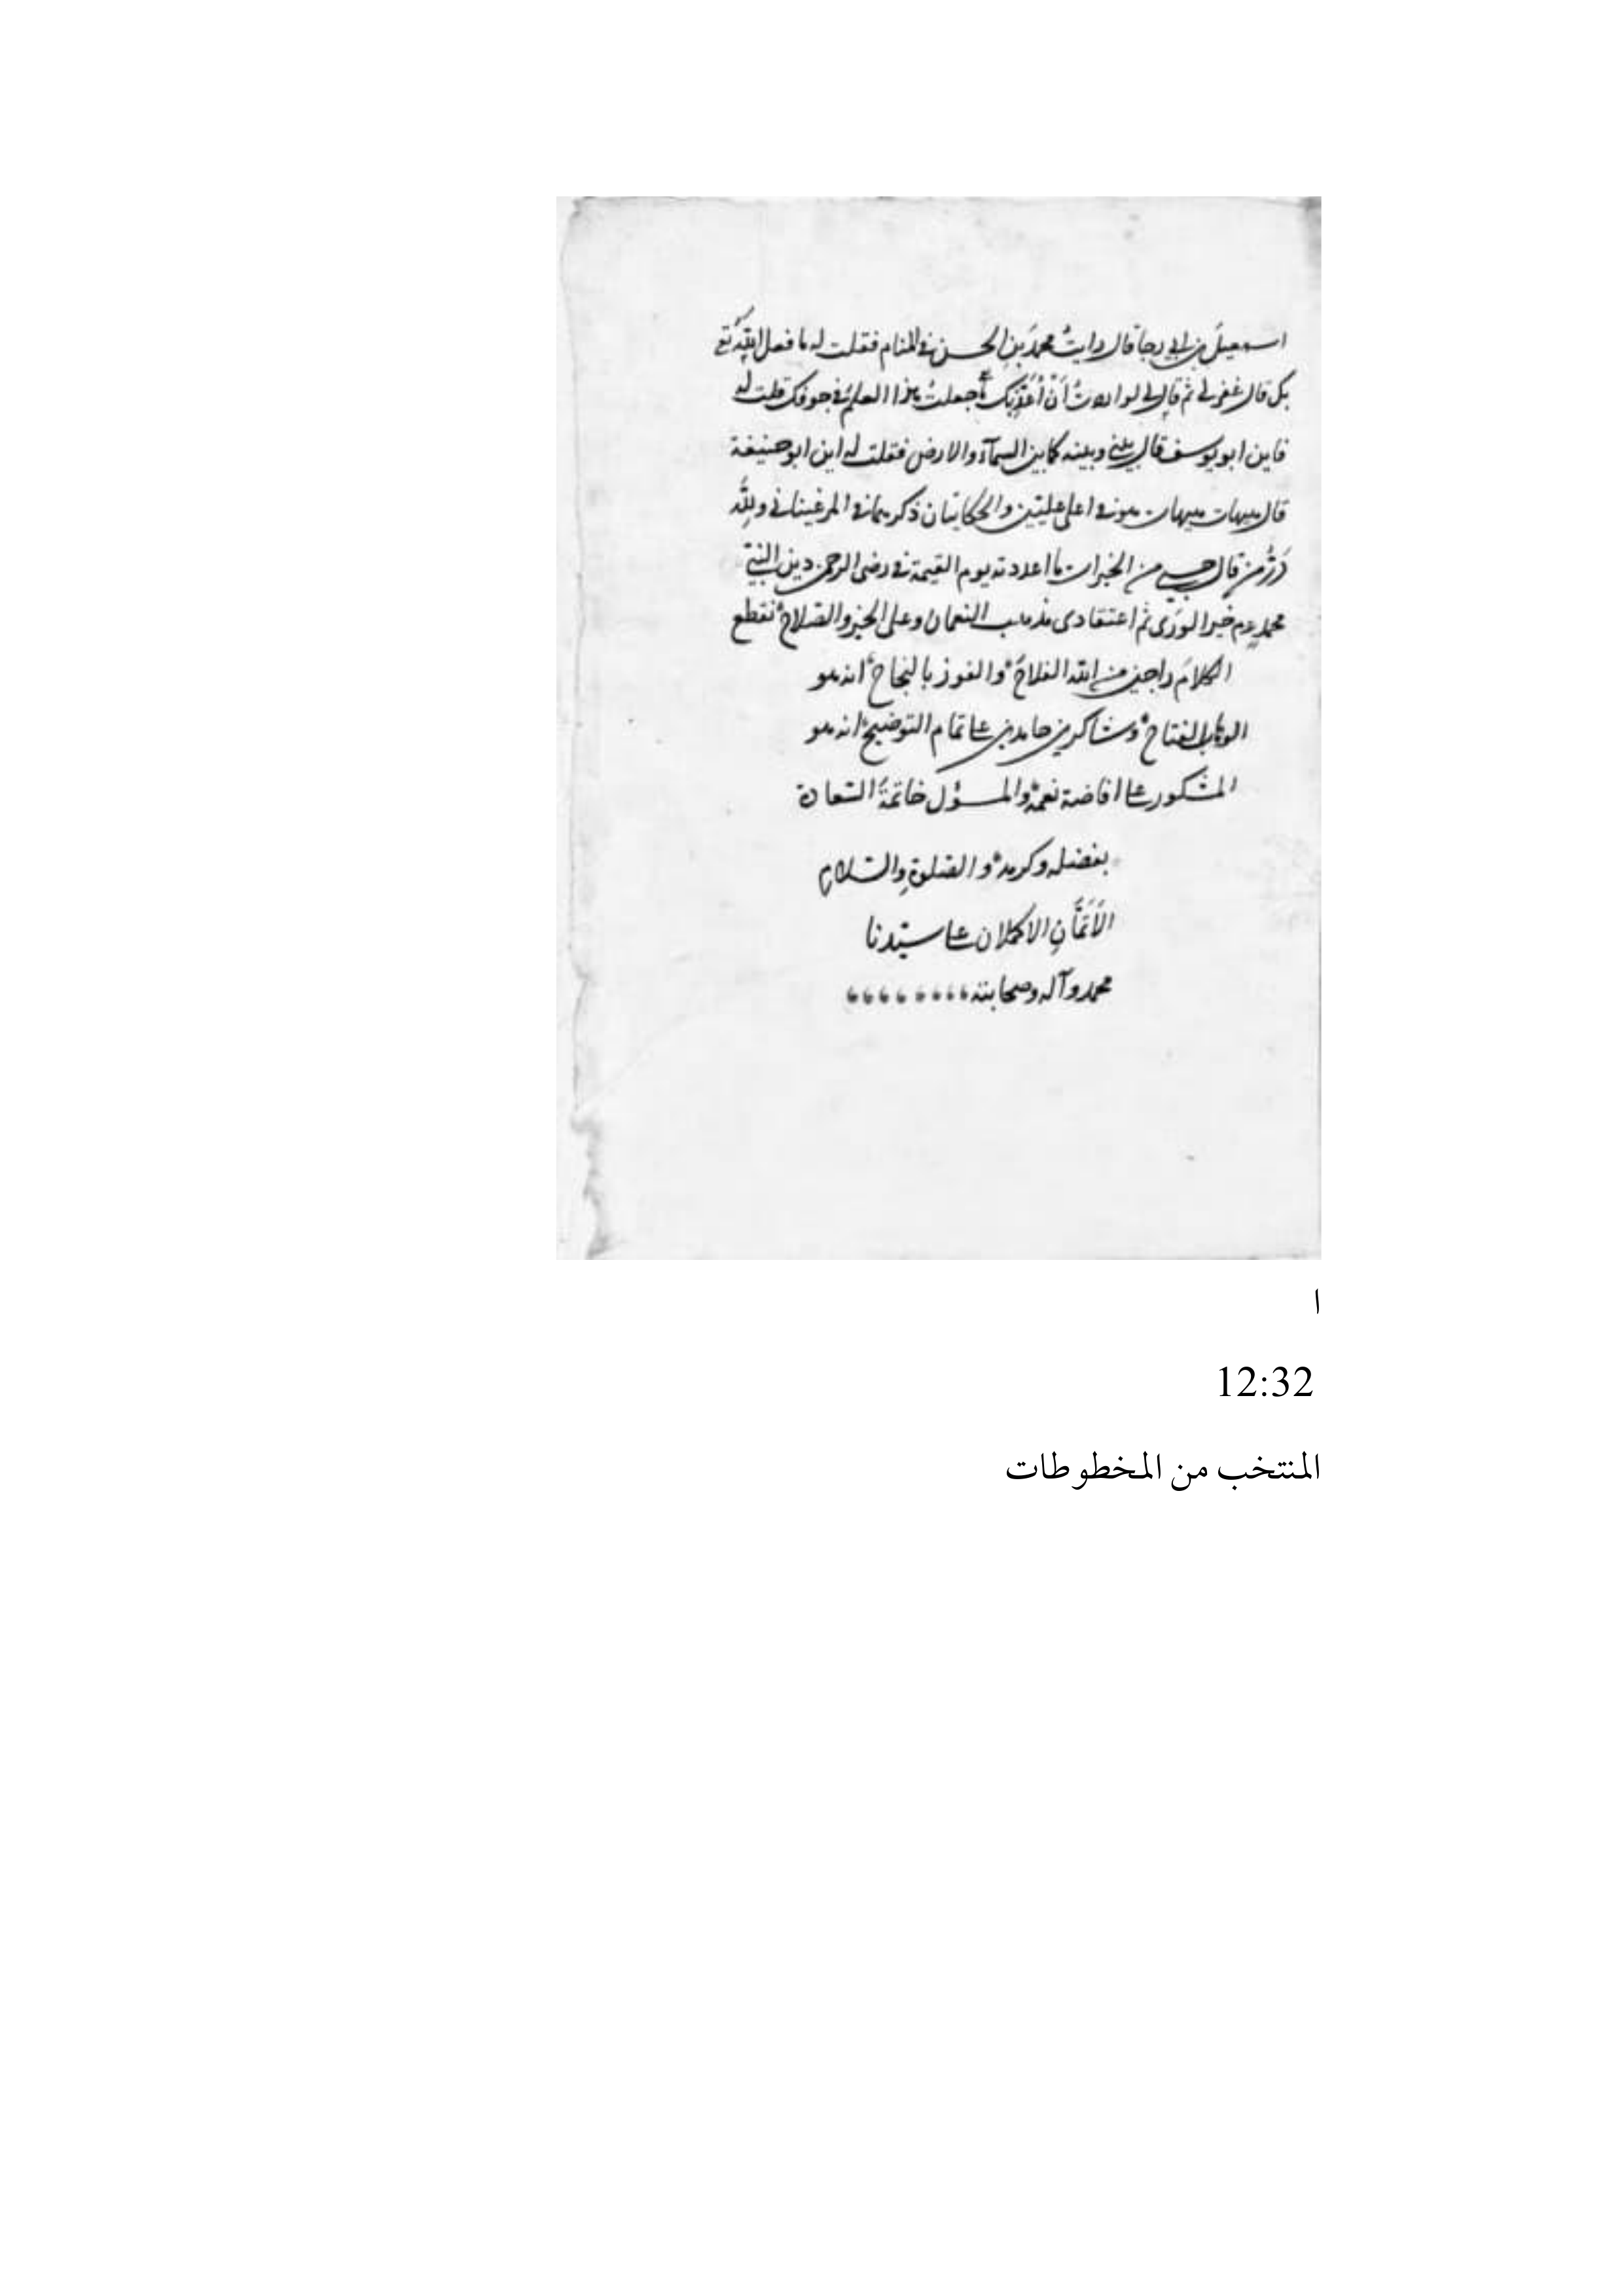 اسمعيلَ بن ابي رجاۤ قال رايتُ محمدَ بنِ الحسن في المنام فقلت له ما فعل اللّٰه تَعَ
بك قال غفر لي ثم قال لي لو اردتُ أنْ أُعَذِّبَك ما جعلتُ هذا العلمَ في جوفك قلت له
فاين ابو يوسف قال بيني وبينه كما بين السمآء والارض فقلت له اين ابو حنيفة
قال هيهات هيهات هو في اعلى عليّين والحكايتان ذكرهما في المرغيناني وللّٰهِ
دَرُّ من قال حسبي من الخيرات ما اعددته يوم القيمة في رضى الرحمن دين النبيّ
محمدٍ عم خير الورَى ثم اعتقادى مذهب النعمان وعلى الخير والصّلاح نقطع
الكلامَ راجين من اللّٰه الفلاحَ والفوز بالنجاح انه هو
الوهّاب الفتاح وشاكرين حامدين على تمام التوضيح انه هو
المشكور على افاضة نعمه والمسؤل خاتمةَ السّعادة
بفضله وكرمه والصّلوةِ والسّلام
الاَتَمَّانِ الاكملان على سيّدنا
محمد وآله وصحابته
ا
12:32
المنتخب من المخطوطات